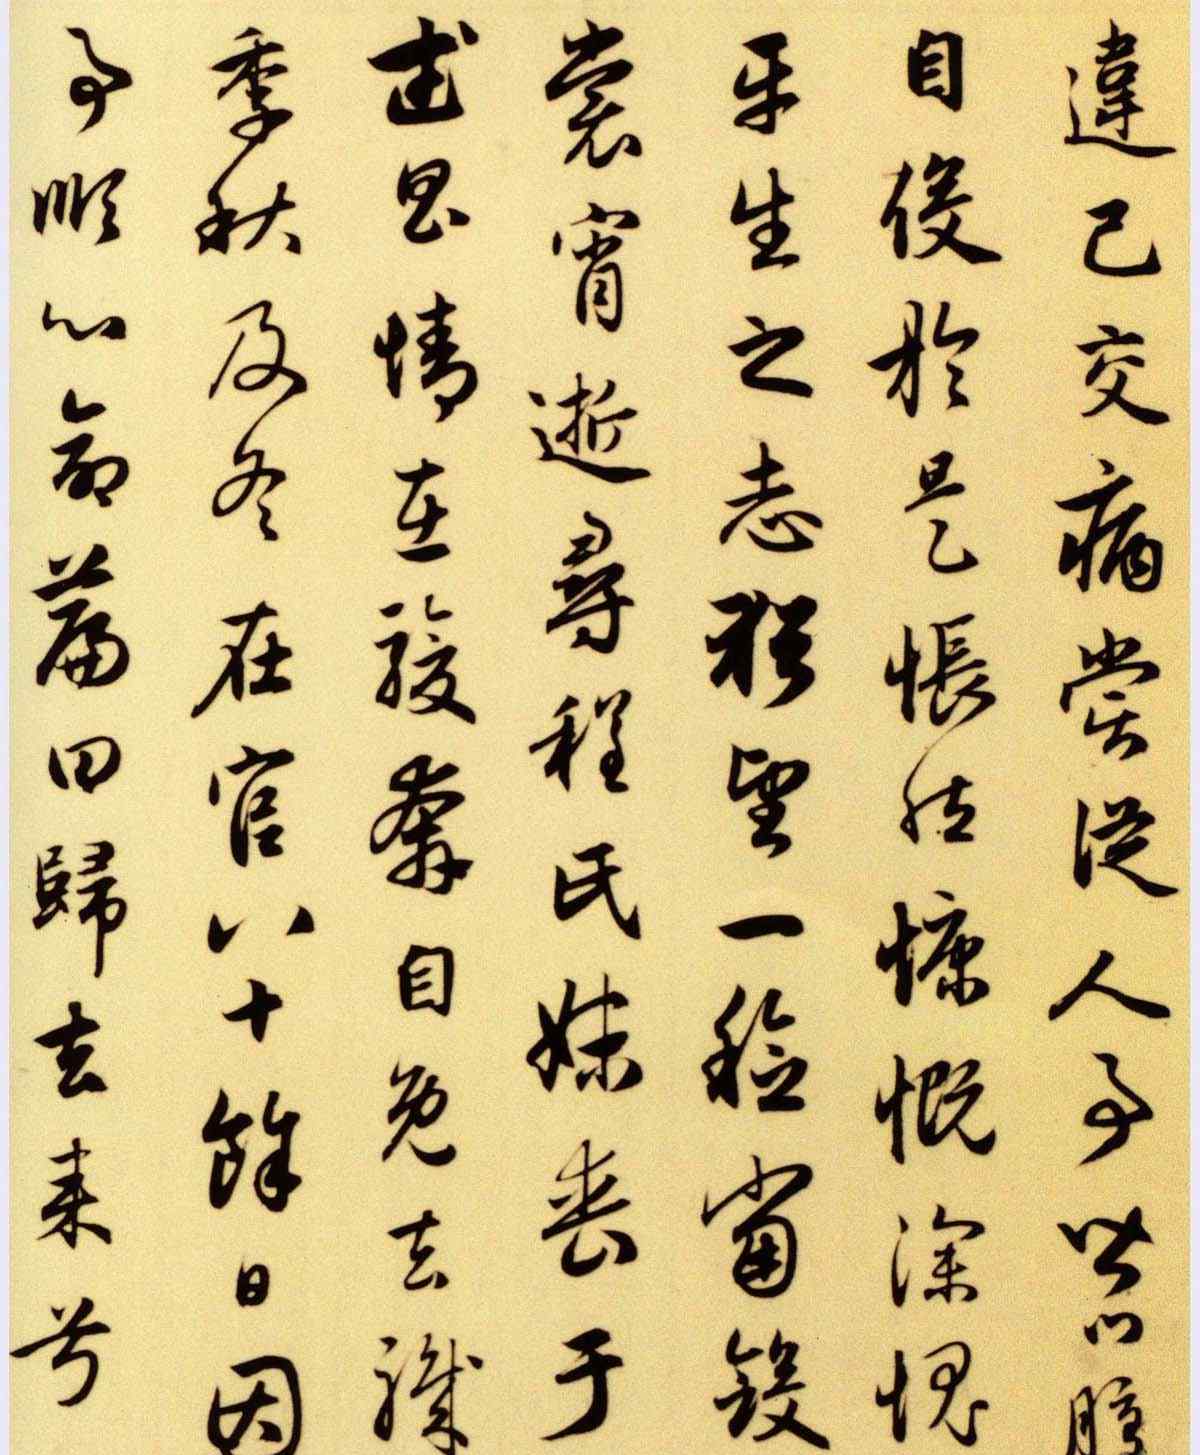 違己交病嘗從人事皆口腹
自役於是悵然慷慨深愧
平生之志猶望一稔當斂
裳宵逝尋程氏妹喪于
武昌情在駿奔自免去職
季秋及冬在官八十餘日因
事順心命篇曰歸去来兮